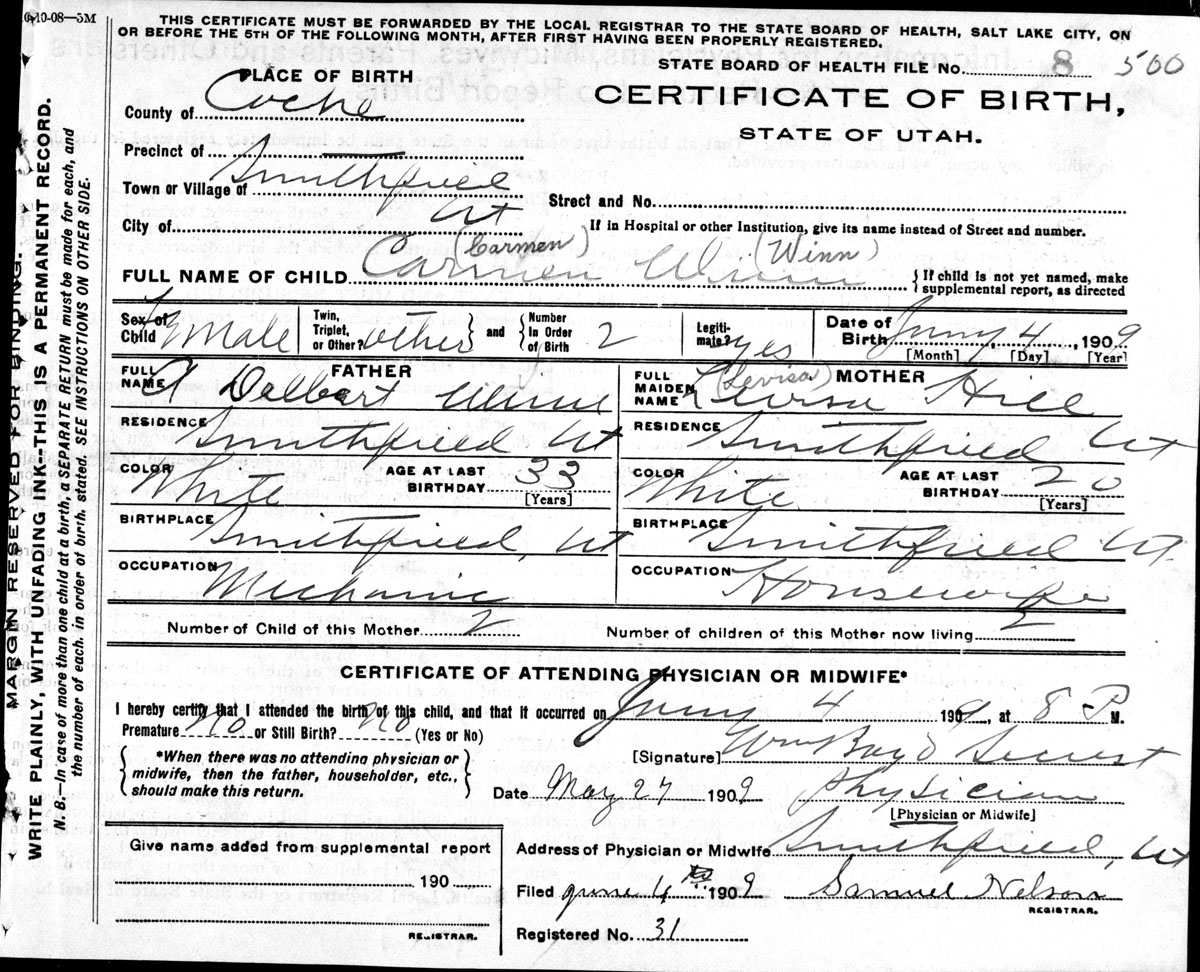 10-10-08—5M
THIS CERTIFICATE MUST BE FORWARDED BY THE LOCAL REGISTRAR TO THE STATE BOARD OF HEALTH, SALT LAKE CITY, ON
OR BEFORE THE 5TH OF THE FOLLOWING MONTH, AFTER FIRST HAVING BEEN PROPERLY REGISTERED.
STATE BOARD OF HEALTH FILE NO. 8 500
PLACE OF BIRTH
CERTIFICATE OF BIRTH,
STATE OF UTAH.
County of Cache
Precinct of
Town or Village of Smithfield
Street and No.
City of Ut
If in Hospital or other Institution, give its name instead of Street and number.
(Carmen) (Winn)
FULL NAME OF CHILD Carmen Winn
If child is not yet named, make
supplemental report, as directed
Sex of Child Female
Twin, Triplet, or Other? other
and
Number In Order of Birth 2
Legitimate? yes
Date of Birth Jany 4 1909
[Month] [Day] [Year]
FATHER
FULL NAME A Delbert Winn
RESIDENCE Smithfield Ut
COLOR White
AGE AT LAST BIRTHDAY 33
[Years]
BIRTHPLACE Smithfield, Ut
OCCUPATION Mechanic
MOTHER
(Levisa)
FULL MAIDEN NAME Levisa Hill
RESIDENCE Smithfield Ut
COLOR White
AGE AT LAST BIRTHDAY 20
[Years]
BIRTHPLACE Smithfield Ut.
OCCUPATION Housewife
Number of Child of this Mother 2
Number of children of this Mother now living 2
CERTIFICATE OF ATTENDING PHYSICIAN OR MIDWIFE*
I hereby certify that I attended the birth of this child, and that it occurred on Jany 4 1909, at 8 P M.
Premature No or Still Birth? No (Yes or No)
*When there was no attending physician or
midwife, then the father, householder, etc.,
should make this return.
[Signature]
Date May 27 1909
Physician
[Physician or Midwife]
Address of Physician or Midwife Smithfield, Ut
Give name added from supplemental report
190
REGISTRAR.
Filed June 4th 1909 Samuel Nelson
REGISTRAR.
Registered No. 31
MARGIN RESERVED FOR BINDING.
WRITE PLAINLY, WITH UNFADING INK—THIS IS A PERMANENT RECORD.
N. B.—In case of more than one child at a birth, a SEPARATE RETURN must be made for each, and
the number of each, in order of birth, stated. SEE INSTRUCTIONS ON OTHER SIDE.